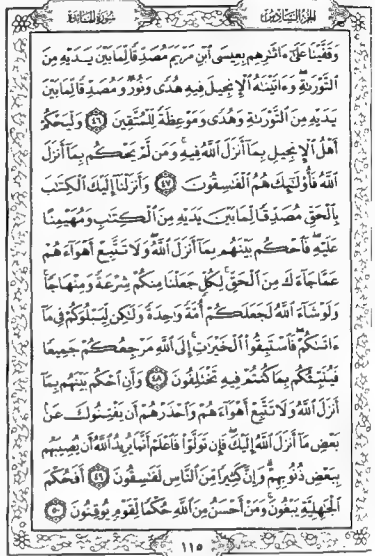 الجزء السادس سورة المائدة
وَقَفَّيْنَا عَلَىٰٓ ءَاثَٰرِهِم بِعِيسَى ٱبْنِ مَرْيَمَ مُصَدِّقًا لِّمَا بَيْنَ يَدَيْهِ مِنَ
ٱلتَّوْرَىٰةِ ۖ وَءَاتَيْنَٰهُ ٱلْإِنجِيلَ فِيهِ هُدًى وَنُورٌ وَمُصَدِّقًا لِّمَا بَيْنَ
يَدَيْهِ مِنَ ٱلتَّوْرَىٰةِ وَهُدًى وَمَوْعِظَةً لِّلْمُتَّقِينَ ٤٦ وَلْيَحْكُمْ
أَهْلُ ٱلْإِنجِيلِ بِمَآ أَنزَلَ ٱللَّهُ فِيهِ ۚ وَمَن لَّمْ يَحْكُم بِمَآ أَنزَلَ
ٱللَّهُ فَأُو۟لَٰٓئِكَ هُمُ ٱلْفَٰسِقُونَ ٤٧ وَأَنزَلْنَآ إِلَيْكَ ٱلْكِتَٰبَ
بِٱلْحَقِّ مُصَدِّقًا لِّمَا بَيْنَ يَدَيْهِ مِنَ ٱلْكِتَٰبِ وَمُهَيْمِنًا
عَلَيْهِ ۖ فَٱحْكُم بَيْنَهُم بِمَآ أَنزَلَ ٱللَّهُ ۖ وَلَا تَتَّبِعْ أَهْوَآءَهُمْ
عَمَّا جَآءَكَ مِنَ ٱلْحَقِّ ۚ لِكُلٍّ جَعَلْنَا مِنكُمْ شِرْعَةً وَمِنْهَاجًا ۚ
وَلَوْ شَآءَ ٱللَّهُ لَجَعَلَكُمْ أُمَّةً وَٰحِدَةً وَلَٰكِن لِّيَبْلُوَكُمْ فِى مَآ
ءَاتَىٰكُمْ ۖ فَٱسْتَبِقُوا۟ ٱلْخَيْرَٰتِ ۚ إِلَى ٱللَّهِ مَرْجِعُكُمْ جَمِيعًا
فَيُنَبِّئُكُم بِمَا كُنتُمْ فِيهِ تَخْتَلِفُونَ ٤٨ وَأَنِ ٱحْكُم بَيْنَهُم بِمَآ
أَنزَلَ ٱللَّهُ وَلَا تَتَّبِعْ أَهْوَآءَهُمْ وَٱحْذَرْهُمْ أَن يَفْتِنُوكَ عَنۢ
بَعْضِ مَآ أَنزَلَ ٱللَّهُ إِلَيْكَ ۖ فَإِن تَوَلَّوْا۟ فَٱعْلَمْ أَنَّمَا يُرِيدُ ٱللَّهُ أَن يُصِيبَهُم
بِبَعْضِ ذُنُوبِهِمْ ۗ وَإِنَّ كَثِيرًا مِّنَ ٱلنَّاسِ لَفَٰسِقُونَ ٤٩ أَفَحُكْمَ
ٱلْجَٰهِلِيَّةِ يَبْغُونَ ۚ وَمَنْ أَحْسَنُ مِنَ ٱللَّهِ حُكْمًا لِّقَوْمٍ يُوقِنُونَ ٥٠
١١٥